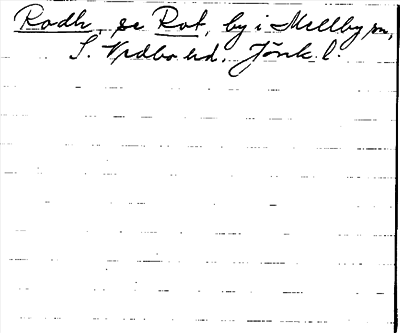 Rodh, se Rot, by i Mellby sn,
S. Vedbo hd. Jönk. l.